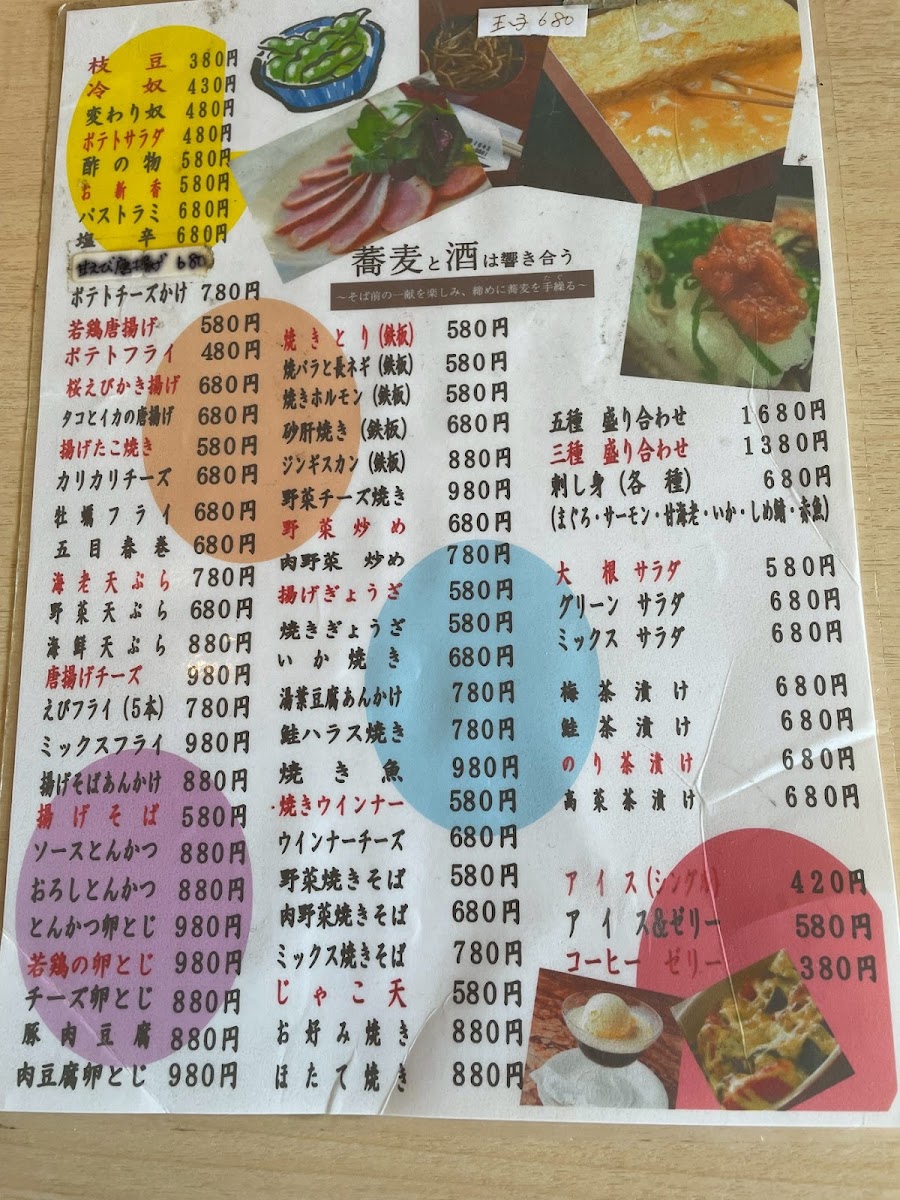 玉子 680
枝豆 380円
冷奴 430円
変わり奴 480円
ポテトサラダ 480円
酢の物 580円
お新香 580円
パストラミ 680円
塩辛 680円
甘えび唐揚げ 680
ポテトチーズかけ 780円
若鶏唐揚げ 580円
ポテトフライ 480円
桜えびかき揚げ 680円
タコとイカの唐揚げ 680円
揚げたこ焼き 580円
カリカリチーズ 680円
牡蠣フライ 680円
五目春巻 680円
海老天ぷら 780円
野菜天ぷら 680円
海鮮天ぷら 880円
唐揚げチーズ 980円
えびフライ(5本) 780円
ミックスフライ 980円
揚げそばあんかけ 880円
揚げそば 580円
ソースとんかつ 880円
おろしとんかつ 880円
とんかつ卵とじ 980円
若鶏の卵とじ 980円
チーズ卵とじ 880円
豚肉豆腐 880円
肉豆腐卵とじ 980円
蕎麦と酒は響き合う
～そば前の一献を楽しみ、締めに蕎麦を手繰る～
焼きとり(鉄板) 580円
焼バラと長ネギ(鉄板) 580円
焼きホルモン(鉄板) 580円
砂肝焼き(鉄板) 680円
ジンギスカン(鉄板) 880円
野菜チーズ焼き 980円
野菜炒め 680円
肉野菜炒め 780円
揚げぎょうざ 580円
焼きぎょうざ 580円
いか焼き 680円
湯葉豆腐あんかけ 780円
鮭ハラス焼き 780円
焼き魚 980円
焼きウインナー 580円
ウインナーチーズ 680円
野菜焼きそば 580円
肉野菜焼きそば 680円
ミックス焼きそば 780円
じゃこ天 580円
お好み焼き 880円
ほたて焼き 880円
五種 盛り合わせ 1680円
三種 盛り合わせ 1380円
刺し身(各種) 680円
(まぐろ・サーモン・甘海老・いか・しめ鯖・赤魚)
大根サラダ 580円
グリーン サラダ 680円
ミックス サラダ 680円
梅茶漬け 680円
鮭茶漬け 680円
のり茶漬け 680円
高菜茶漬け 680円
アイス(シングル) 420円
アイス&ゼリー 580円
コーヒー ゼリー 380円